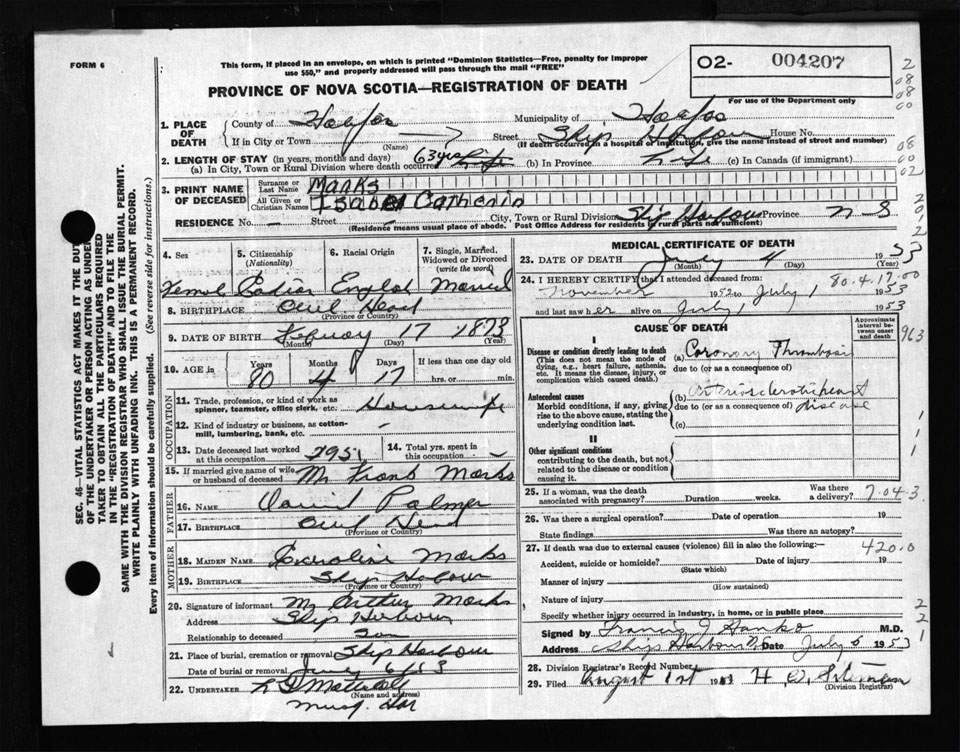 FORM 6
This form, if placed in an envelope, on which is printed "Dominion Statistics—Free, penalty for improper
use $50," and properly addressed will pass through the mail "FREE"
02- 004207
For use of the Department only
PROVINCE OF NOVA SCOTIA—REGISTRATION OF DEATH
1. PLACE OF DEATH
County of Halifax Municipality of Halifax
If in City or Town (Name) Street Ship Harbour House No.
(If death occurred in a hospital or institution, give the name instead of street and number)
2. LENGTH OF STAY (in years, months and days)
(a) In City, Town or Rural Division where death occurred 63 yrs (b) In Province Life (c) In Canada (if immigrant)
3. PRINT NAME OF DECEASED
Surname or Last Name Marks
All Given or Christian Names Isabel Catherin
RESIDENCE No. - Street - City, Town or Rural Division Ship Harbour Province N S
(Residence means usual place of abode. Post Office Address for residents in rural parts not sufficient)
4. Sex 5. Citizenship (Nationality) 6. Racial Origin 7. Single, Married, Widowed or Divorced (write the word)
Female English Married
8. BIRTHPLACE Owl Head
(Province or Country)
9. DATE OF BIRTH February 17 1873
(Month) (Day) (Year)
10. AGE in Years 80 Months 4 Days 17 If less than one day old hrs. or min.
OCCUPATION
11. Trade, profession or kind of work as spinner, teamster, office clerk, etc. Housewife
12. Kind of industry or business, as cotton-mill, lumbering, bank, etc. -
13. Date deceased last worked at this occupation 14. Total yrs. spent in this occupation
15. If married give name of wife or husband of deceased Mr Frank Marks
FATHER
16. NAME Palmer
17. BIRTHPLACE Owl Head
(Province or Country)
MOTHER
18. MAIDEN NAME Caroline Marks
19. BIRTHPLACE Ship Harbour
(Province or Country)
20. Signature of informant Mr Arthur Marks
Address Ship Harbour
Relationship to deceased Son
21. Place of burial, cremation or removal Ship Harbour
Date of burial or removal 6/53
22. UNDERTAKER
(Name and address)
Musq. Har
MEDICAL CERTIFICATE OF DEATH
23. DATE OF DEATH July 4 1953
(Month) (Day) (Year)
24. I HEREBY CERTIFY that I attended deceased from: 80.4.17.00
November 1952 to July 1 1953
and last saw her alive on July 1 1953
CAUSE OF DEATH
Approximate interval between onset and death
I
Disease or condition directly leading to death
(This does not mean the mode of dying, e.g., heart failure, asthenia, etc. It means the disease, injury, or complication which caused death.)
(a) Coronary Thrombosis
due to (or as a consequence of)
Antecedent causes
Morbid conditions, if any, giving rise to the above cause, stating the underlying condition last.
(b) Arteriosclerotic heart disease
due to (or as a consequence of)
(c)
II
Other significant conditions
contributing to the death, but not related to the disease or condition causing it.
25. If a woman, was the death associated with pregnancy? Duration weeks. Was there a delivery?
7.04.3
26. Was there a surgical operation? Date of operation 19
State findings Was there an autopsy?
27. If death was due to external causes (violence) fill in also the following:— 420.0
Accident, suicide or homicide? Date of injury 19
(State which)
Manner of injury
(How sustained)
Nature of injury
Specify whether injury occurred in industry, in home, or in public place
Signed by M.D.
Address Ship Harbour NS Date July 5 1953
28. Division Registrar's Record Number
29. Filed August 1st 1953
(Division Registrar)
SEC. 46—VITAL STATISTICS ACT MAKES IT THE DUTY
OF THE UNDERTAKER OR PERSON ACTING AS UNDER-
TAKER TO OBTAIN ALL THE PARTICULARS REQUIRED
IN THE "REGISTRATION OF DEATH" AND TO FILE THE
SAME WITH THE DIVISION REGISTRAR WHO SHALL ISSUE THE BURIAL PERMIT.
WRITE PLAINLY WITH UNFADING INK. THIS IS A PERMANENT RECORD.
Every item of information should be carefully supplied. (See reverse side for instructions.)